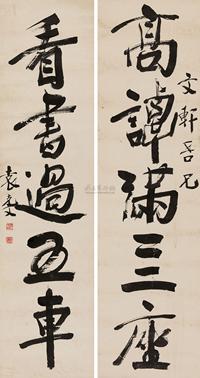 高譚滿三座
文軒吾兄
看書過五車
袁燮